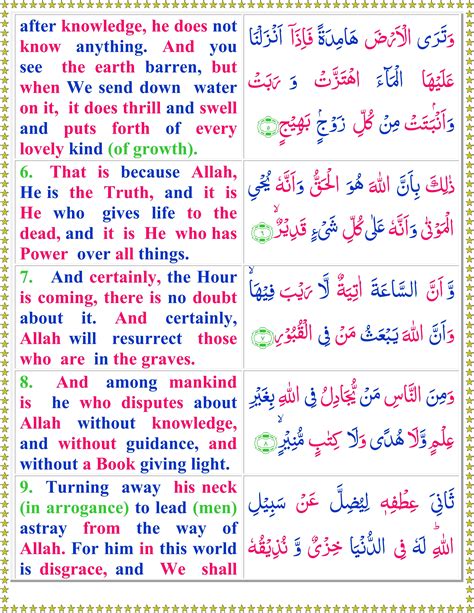 after knowledge, he does not
know anything. And you
see the earth barren, but
when We send down water
on it, it does thrill and swell
and puts forth of every
lovely kind (of growth).
وَتَرَى الْاَرْضَ هَامِدَةً فَاِذَاۤ اَنْزَلْنَا
عَلَيْهَا الْمَآءَ اهْتَزَّتْ وَ رَبَتْ
وَاَنْۢبَتَتْ مِنْ كُلِّ زَوْجٍۭ بَهِيْجٍ ۵
6. That is because Allah,
He is the Truth, and it is
He who gives life to the
dead, and it is He who has
Power over all things.
ذٰلِكَ بِاَنَّ اللّٰهَ هُوَ الْحَقُّ وَاَنَّهٗ يُحْيِ
الْمَوْتٰى وَاَنَّهٗ عَلٰى كُلِّ شَىْءٍ قَدِيْرٌ ۙ ۶
7. And certainly, the Hour
is coming, there is no doubt
about it. And certainly,
Allah will resurrect those
who are in the graves.
وَّ اَنَّ السَّاعَةَ اٰتِيَةٌ لَّا رَيْبَ فِيْهَا ۙ
وَاَنَّ اللّٰهَ يَبْعَثُ مَنْ فِى الْقُبُوْرِ ۷
8. And among mankind
is he who disputes about
Allah without knowledge,
and without guidance, and
without a Book giving light.
وَمِنَ النَّاسِ مَنْ يُّجَادِلُ فِى اللّٰهِ بِغَيْرِ
عِلْمٍ وَّلَا هُدًى وَّلَا كِتٰبٍ مُّنِيْرٍ ۙ ۸
9. Turning away his neck
(in arrogance) to lead (men)
astray from the way of
Allah. For him in this world
is disgrace, and We shall
ثَانِيَ عِطْفِهٖ لِيُضِلَّ عَنْ سَبِيْلِ
اللّٰهِ ؕ لَهٗ فِى الدُّنْيَا خِزْىٌ وَّ نُذِيْقُهٗ